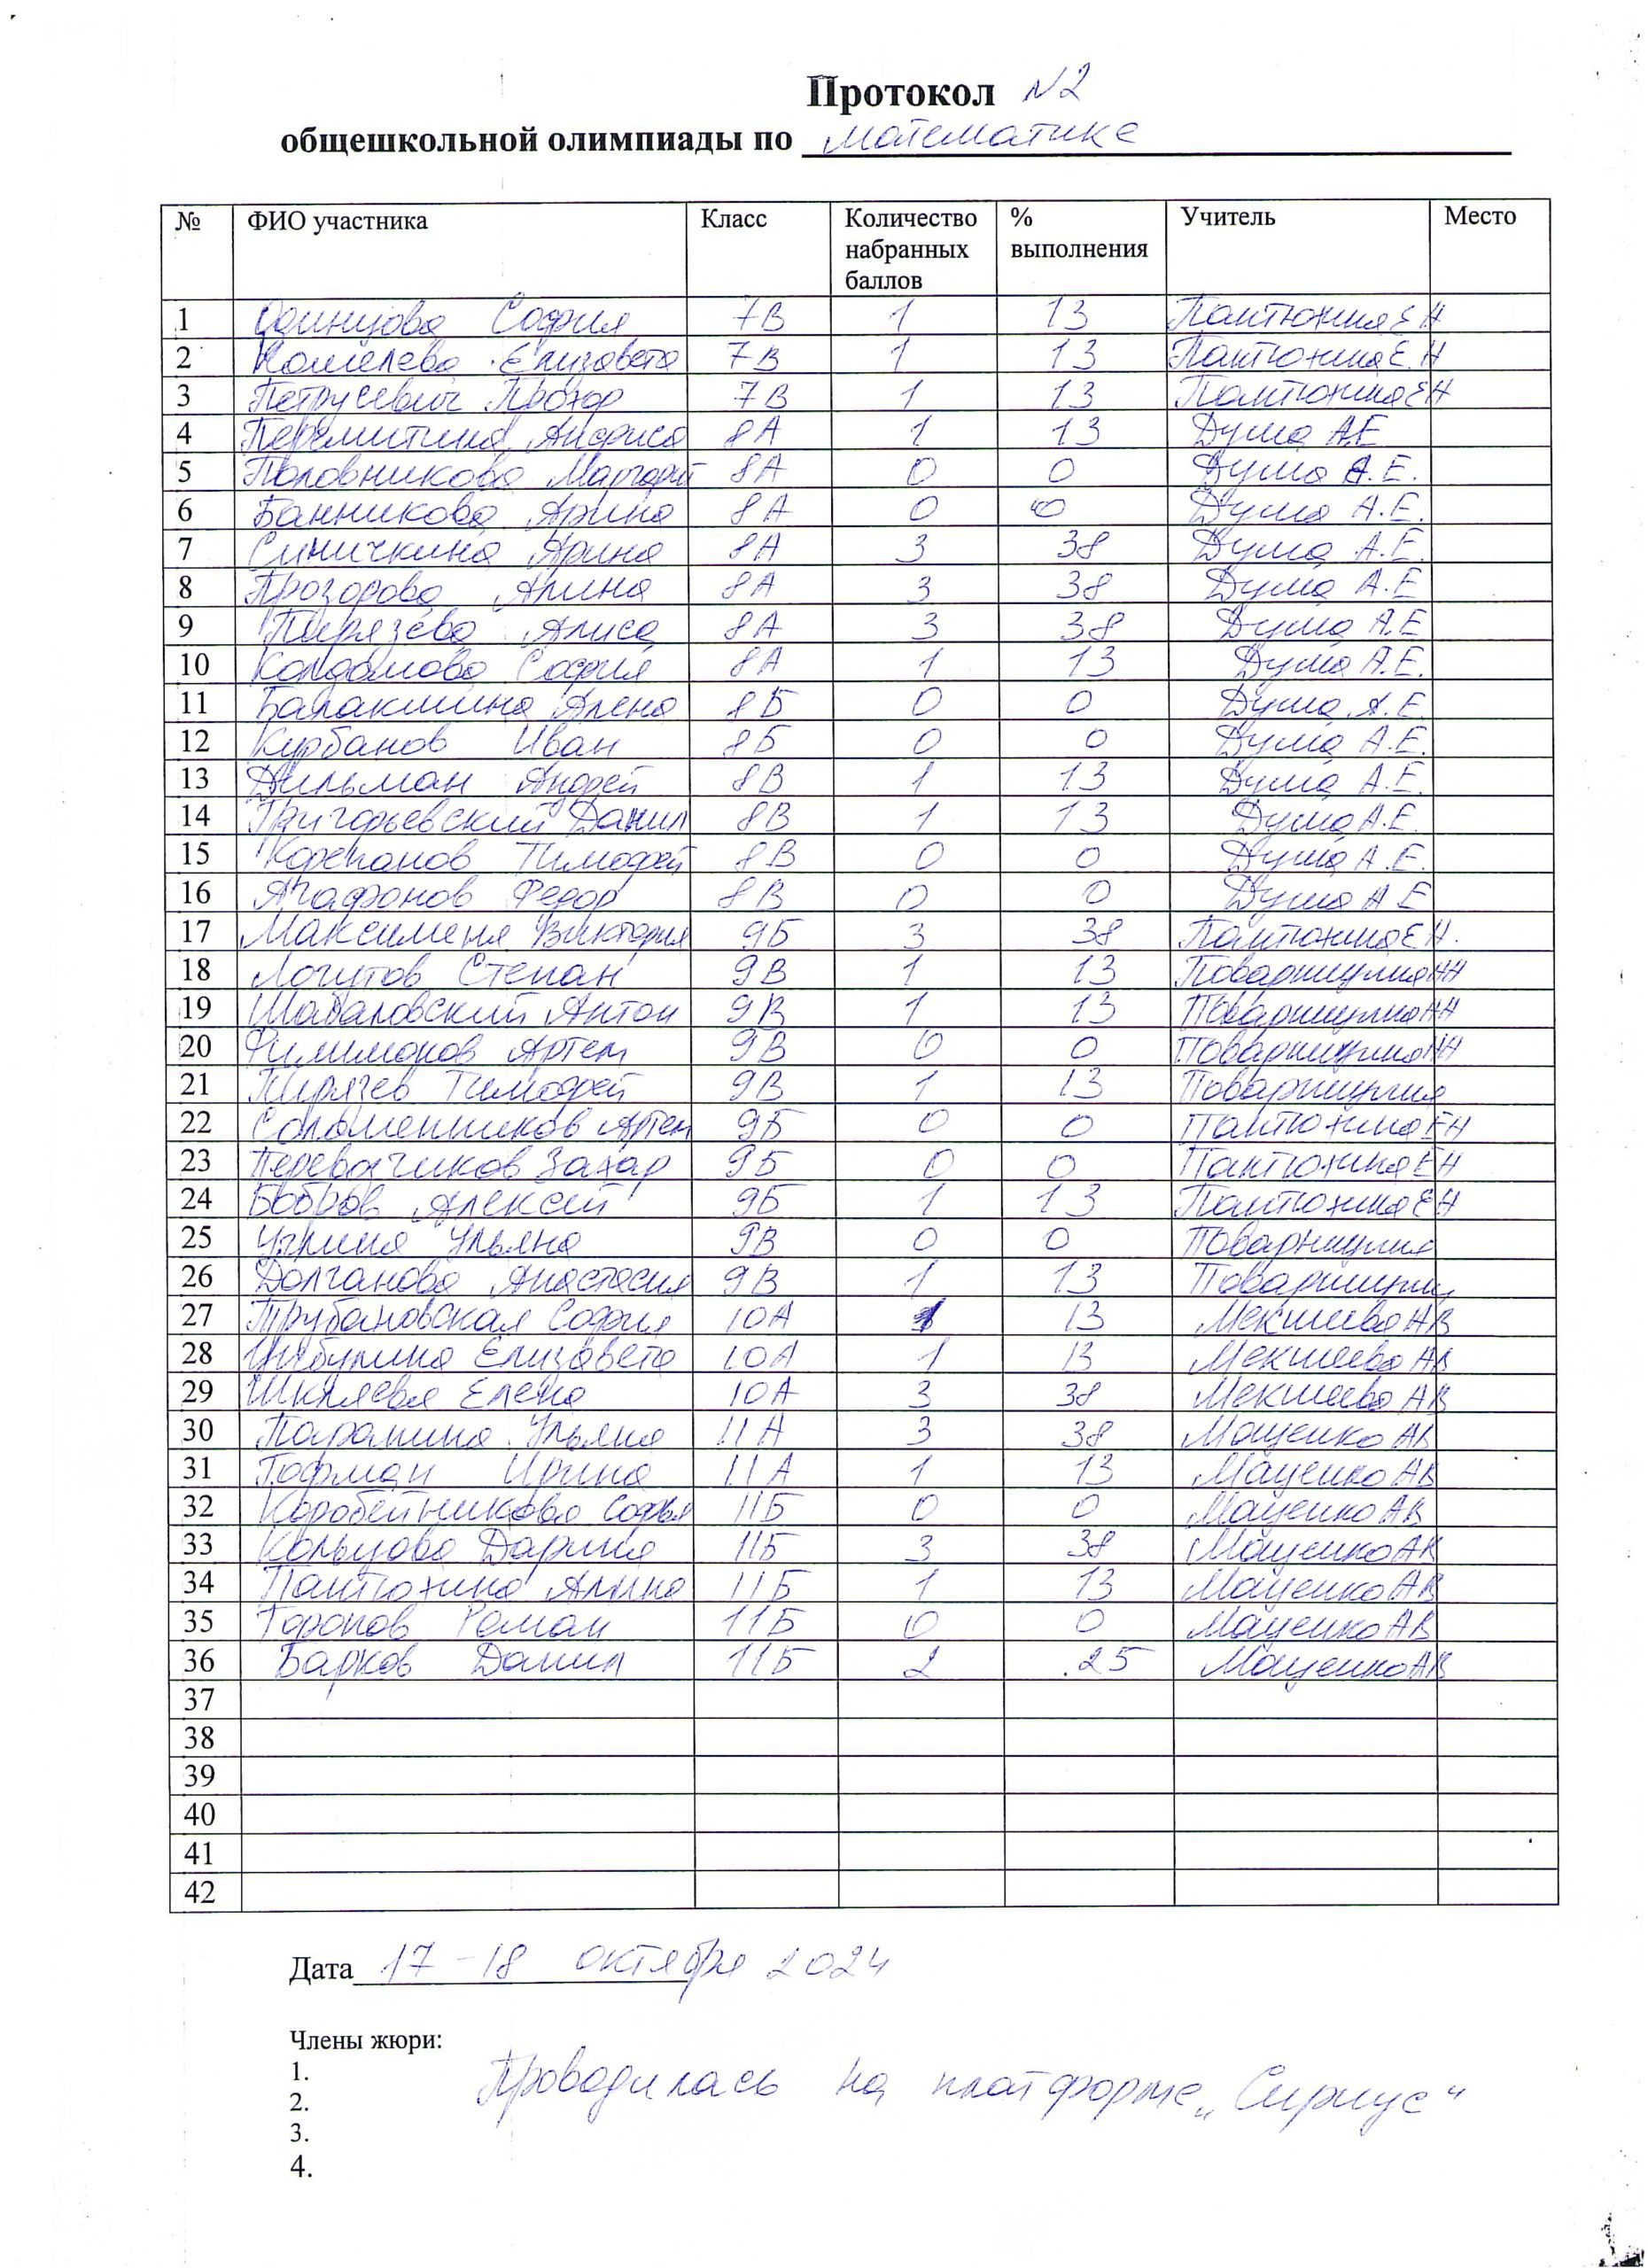 Протокол №2
общешкольной олимпиады по математике
№ ФИО участника Класс Количество набранных баллов % выполнения Учитель Место
1 Одинцова София 7В 1 13 Пантюхина Е Н
2 Кошелева Елизавета 7В 1 13 Пантюхина Е. Н
3 Петрусевич Прохор 7В 1 13 Пантюхина Е Н
4 Перемитина Анфиса 8А 1 13 Дума А.Е
5 Половникова Маргарит 8А 0 0 Дума А.Е.
6 Банникова Арина 8А 0 0 Дума А.Е.
7 Синичкина Арина 8А 3 38 Дума А.Е.
8 Прозорова Алина 8А 3 38 Дума А.Е
9 Пирязева Алиса 8А 3 38 Дума А.Е
10 София 8А 1 13 Дума А.Е.
11 Балакшина Алена 8Б 0 0 Дума А.Е.
12 Курбанов Иван 8Б 0 0 Дума А.Е.
13 Дильман Андрей 8В 1 13 Дума А.Е.
14 Григорьевский Данил 8В 1 13 Дума А.Е.
15 Корепанов Тимофей 8В 0 0 Дума А.Е.
16 Агафонов Федор 8В 0 0 Дума А Е
17 Максименя Виктория 9Б 3 38 Пантюхина Е Н.
18 Логутов Степан 9В 1 13 Поварницына НН
19 Шабаловский Антон 9В 1 13 Поварницына НН
20 Филимонов Артем 9В 0 0 Поварницына НН
21 Пирязев Тимофей 9В 1 13 Поварницына
22 Соломенников Артем 9Б 0 0 Пантюхина Е Н
23 Перевозчиков Захар 9Б 0 0 Пантюхина Е Н
24 Бобров Алексей 9Б 1 13 Пантюхина Е Н
25 Ульяна 9В 0 0 Поварницына
26 Долганова Анастасия 9В 1 13 Поварницын
27 Трубановская София 10А 1 13 Мекшева А В
28 Цыбулина Елизавета 10А 1 13 Мекшева АВ
29 Шкляева Елена 10А 3 38 Мекшева А В
30 Парамина Ульяна 11А 3 38 Маценко АВ
31 Гофман Ирина 11А 1 13 Маценко АВ
32 Коробейникова Софья 11Б 0 0 Маценко АВ
33 Кольцова Дарина 11Б 3 38 Маценко АВ
34 Пантюхина Алина 11Б 1 13 Маценко АВ
35 Торопов Роман 11Б 0 0 Маценко АВ
36 Барков Данил 11Б 2 25 Маценко АВ
37
38
39
40
41
42
Дата 17-18 октября 2024
Члены жюри:
1.
Проводилась на платформе „Сириус“
2.
3.
4.